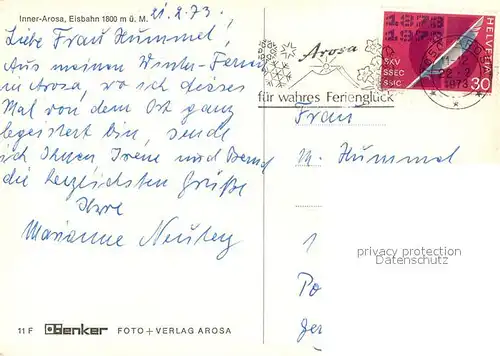 Inner-Arosa, Eisbahn 1800 m ü. M.
21.2.73.
Liebe Frau Hummel,
Aus meinen Winter-Ferien
in Arosa, wo ich dieses
Mal von dem Ort ganz
begeistert bin, sende
ich Ihnen, Irene und Bernd
die herzlichsten Grüße
Ihre
Marianne
11 F Benker FOTO + VERLAG AROSA
Arosa
für wahres Ferienglück
1873
1973
SKV
SSEC
SSIC
HELVETIA
30
AROSA
22.2.
1973
Frau
M. Hummel
1
Po
privacy protection
Datenschutz